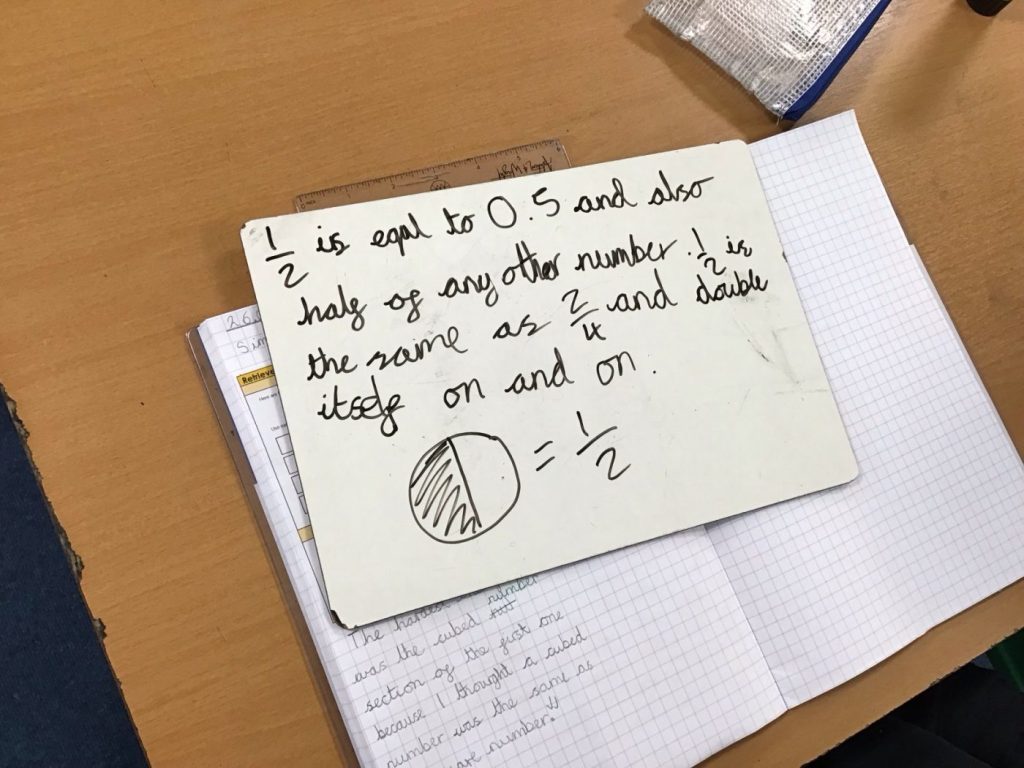 1/2 is eqal to 0.5 and also
half of any other number. 1/2 is
the same as 2/4 and double
itself on and on.
= 1/2
Retrieve
The hardest number
was the cubed
section of the first one
because I thought a cubed
number was the same as
number.